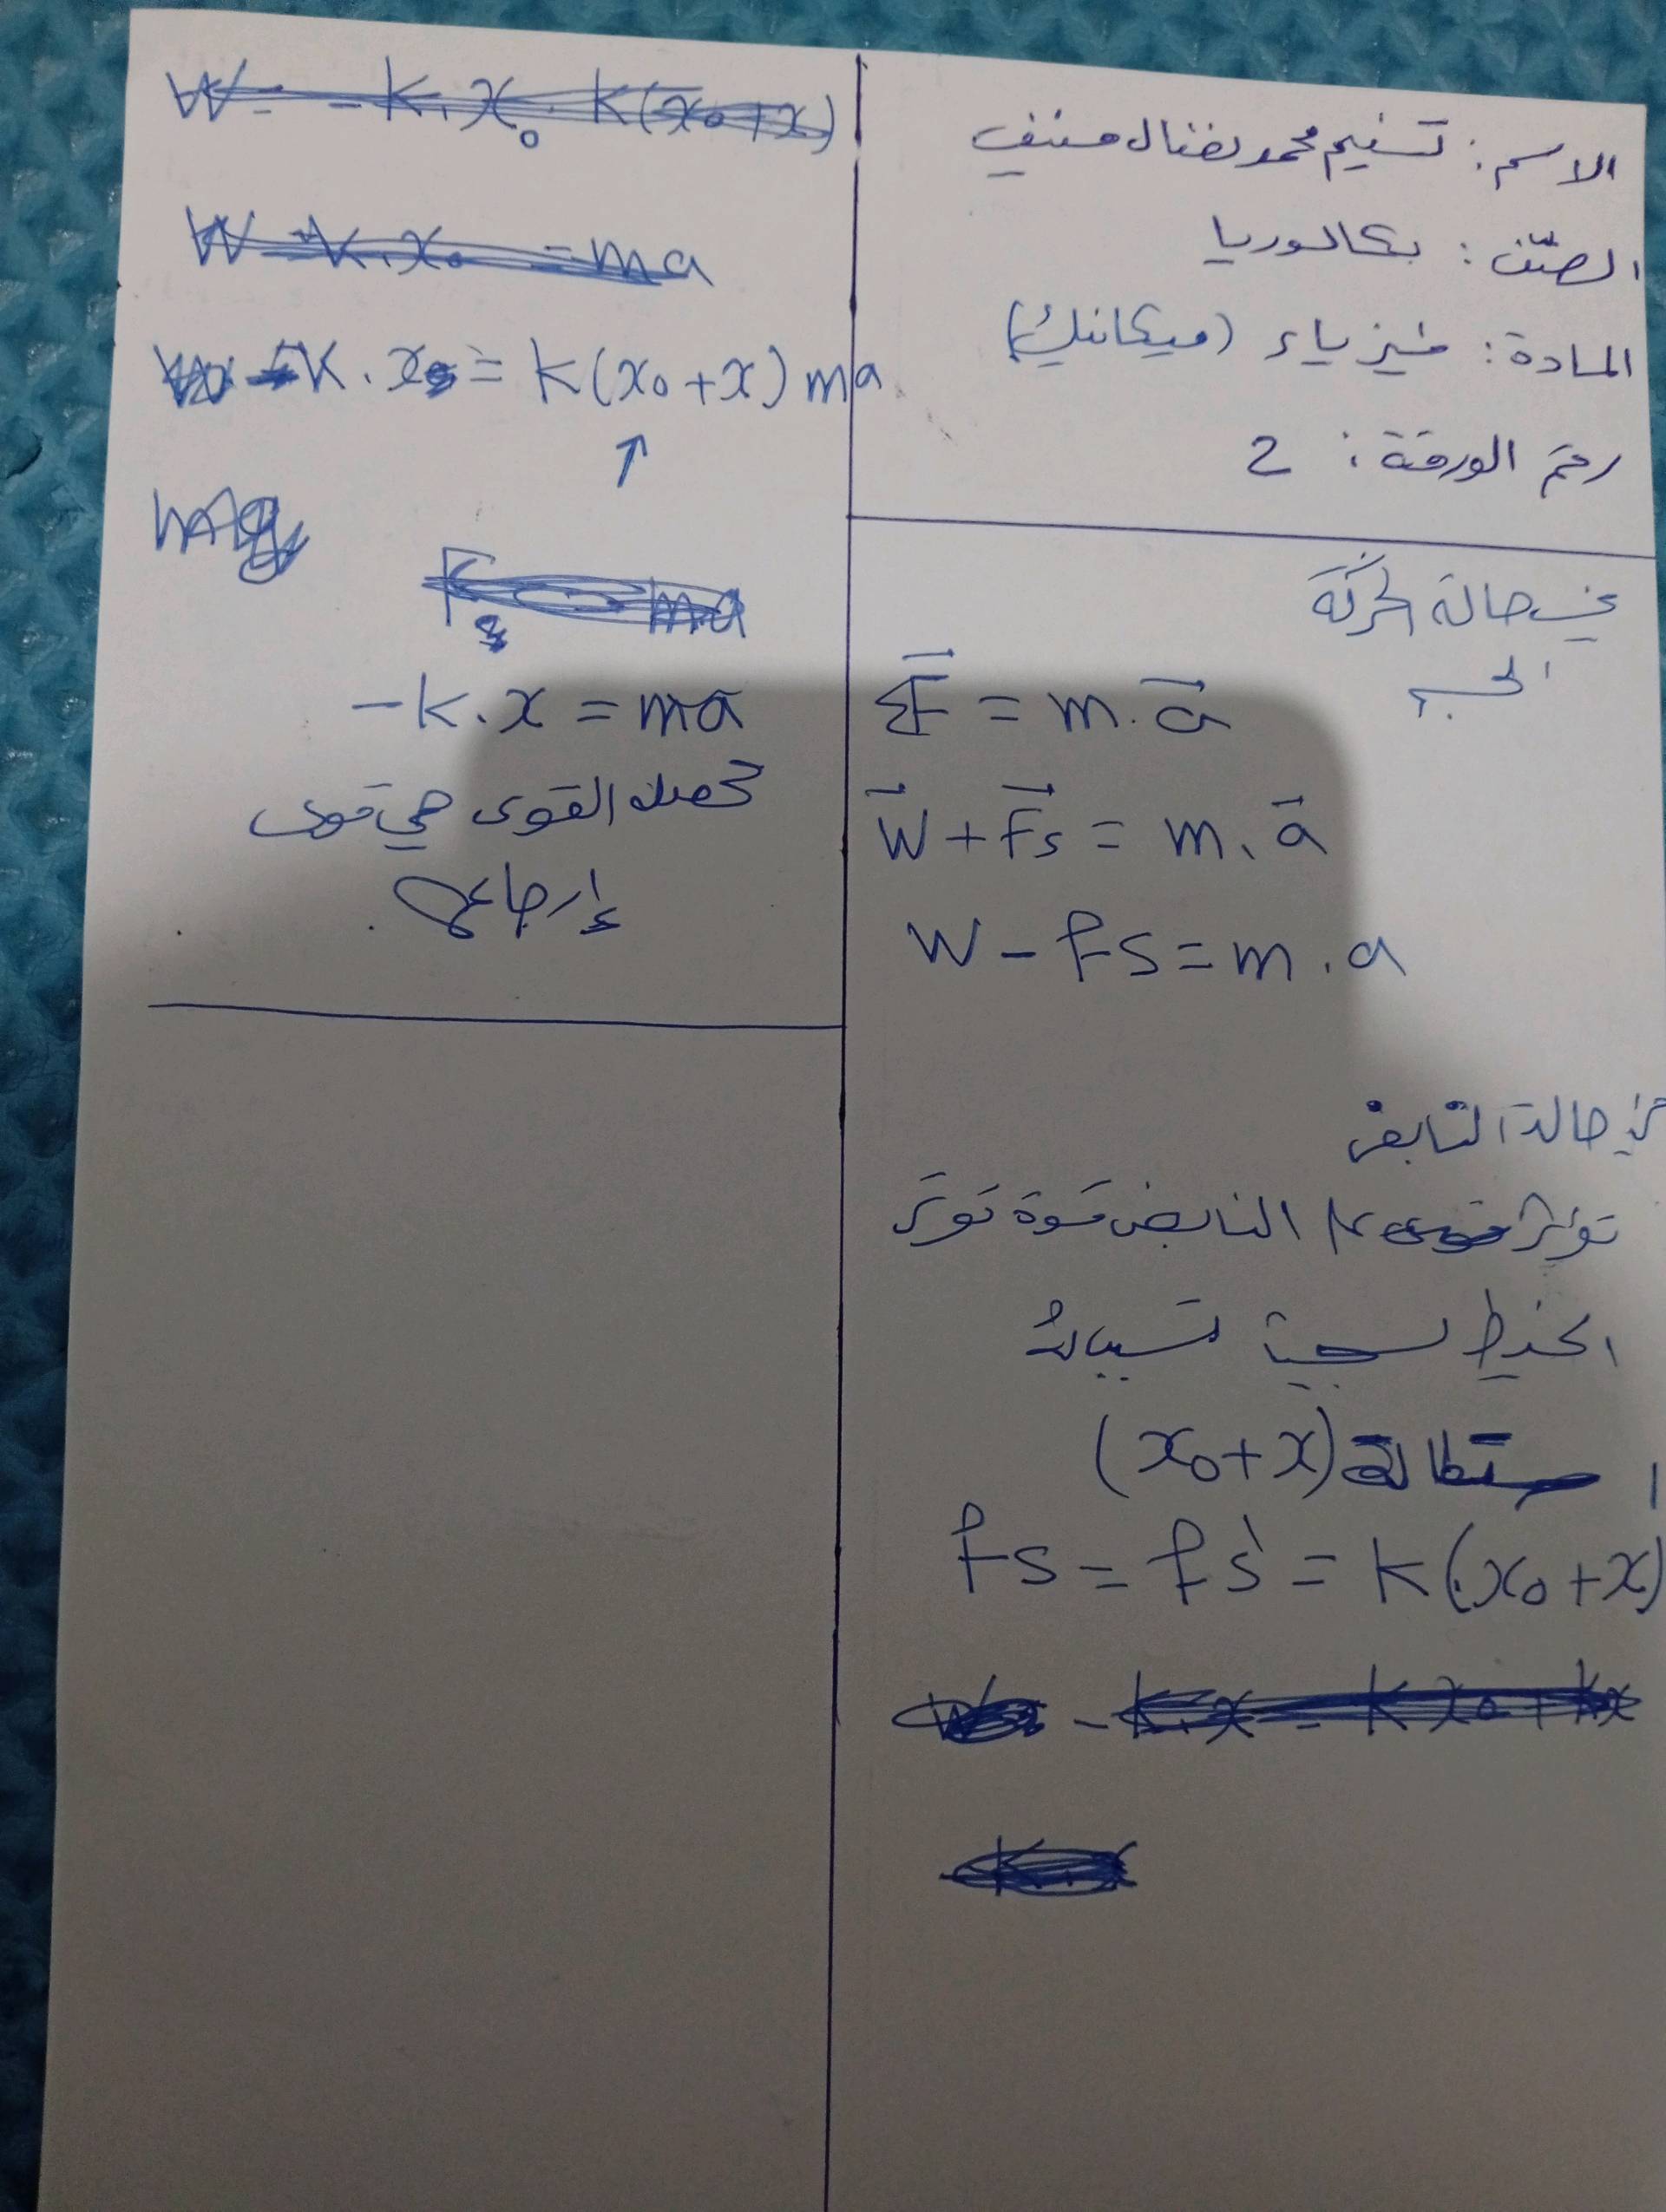 الاسم: تسنيم محمد نضال منيف
الصف: بكالوريا
المادة: فيزياء (ميكانيك)
رقم الورقة: 2
في حالة الحركة
الجسم
ΣF = m.a
W + Fs = m.a
W - Fs = m.a
في حالة النابض
تؤثر النابض قوة توتر
الخيط تسبب له
استطالة (x₀+x)
Fs = Fs' = K(x₀+x)
K.x₀ = K(x₀+x) ma
↑
-K.x = ma
محصلة القوى هي قوى
إرجاع.